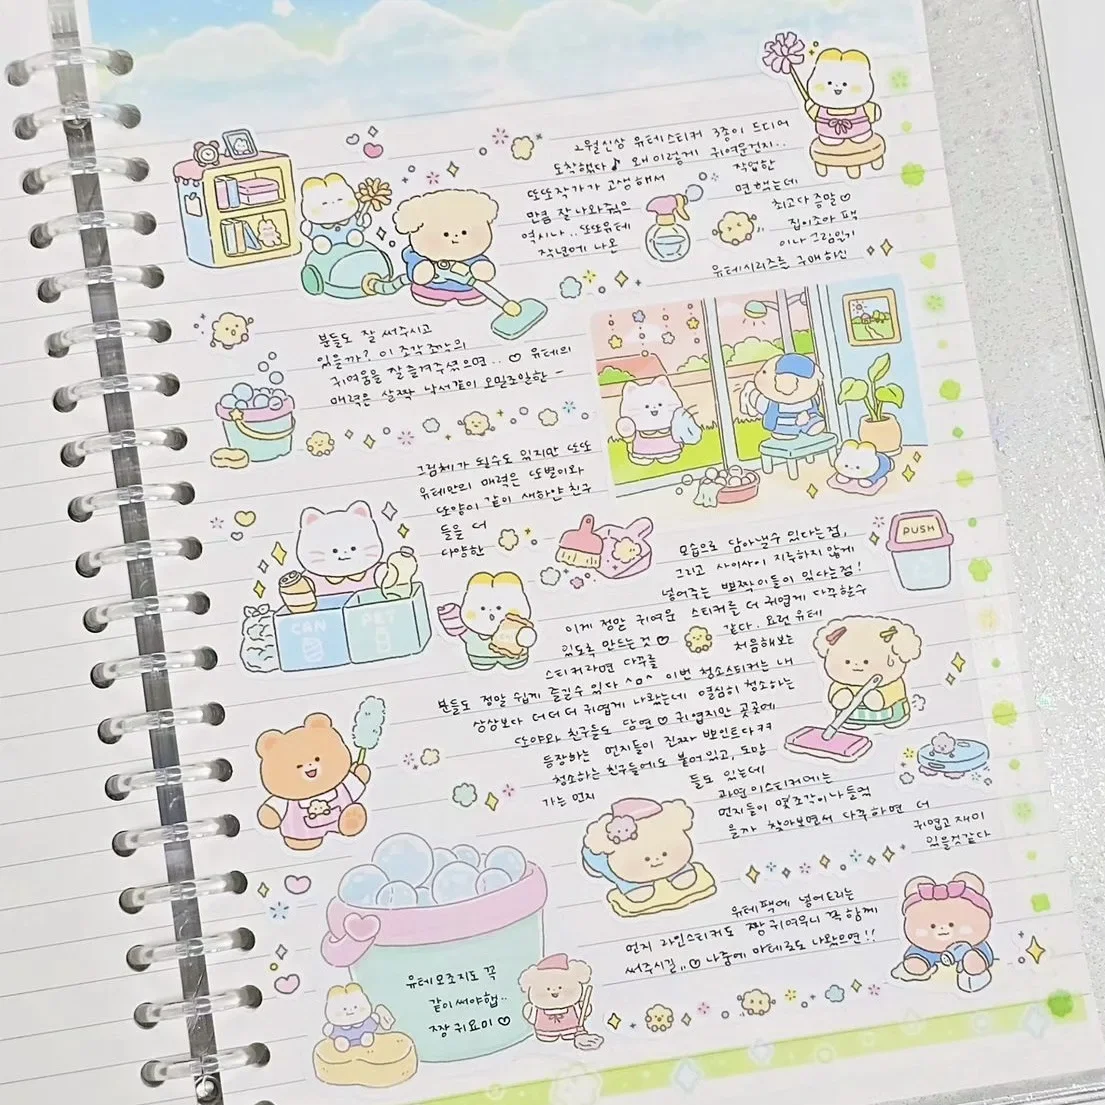 2월신상 유테스티커 3종이 드디어
도착했다♪ 왜이렇게 귀여운건지..
또또작가가 고생해서 작업한
만큼 잘나와줘서 면했는데
역시나.. 또또유테 최고다 증말♡
작년에 나온 집이좋아 팩
이나 그림일기
유테시리즈를 구매하신
분들도 잘 써주시고
있을까? 이 조각조각의
귀여움을 잘즐겨주셨으면.. ♡ 유테의
매력은 살짝 낙서같이 오밀조밀한 -
그림체가 될수도 있지만 또또
유테만의 매력은 또별이와
또양이 같이 새하얀 친구
들을 더
다양한
모습으로 담아낼수 있다는점,
그리고 사이사이 지루하지 않게
넣어주는 뽀짝이들이 있다는점!
이게 정말 귀여운 스티커를 더 귀엽게 다꾸할수
있도록 만드는것♡ 같다. 요런 유테
스티커라면 다꾸를 처음해보는
분들도 정말 쉽게 즐길수 있다 ^o^ 이번 청소스티커는 내
상상보다 더더더 귀엽게 나왔는데 열심히 청소하는
또야와 친구들도 당연♡ 귀엽지만 곳곳에
등장하는 먼지들이 진짜 뽀인트다ㅋㅋ
청소하는 친구들에도 붙어있고, 도망
가는 먼지 들도 있는데
과연 이스티커에는
먼지들이 몇조각이나 들었
을까 찾아보면서 다꾸하면 더
귀엽고 재미
있을것같다
유테팩에 넣어드리는
먼지 라인스티커도 짱귀여우니 꼭 함께
써주시길,,♡ 나중에 마테로도 나왔으면!!
유테모조지도 꼭
같이써야햅..
짱 귀요미♡
CAN
PET
PUSH